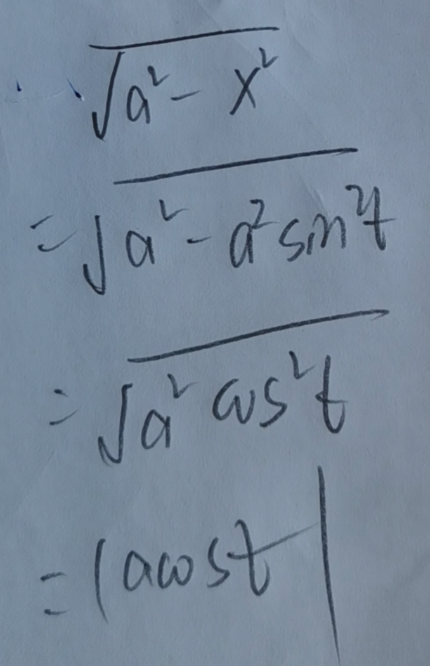 √(a² - x²)
= √(a² - a² sin² t)
= √(a² cos² t)
= |a cos t|